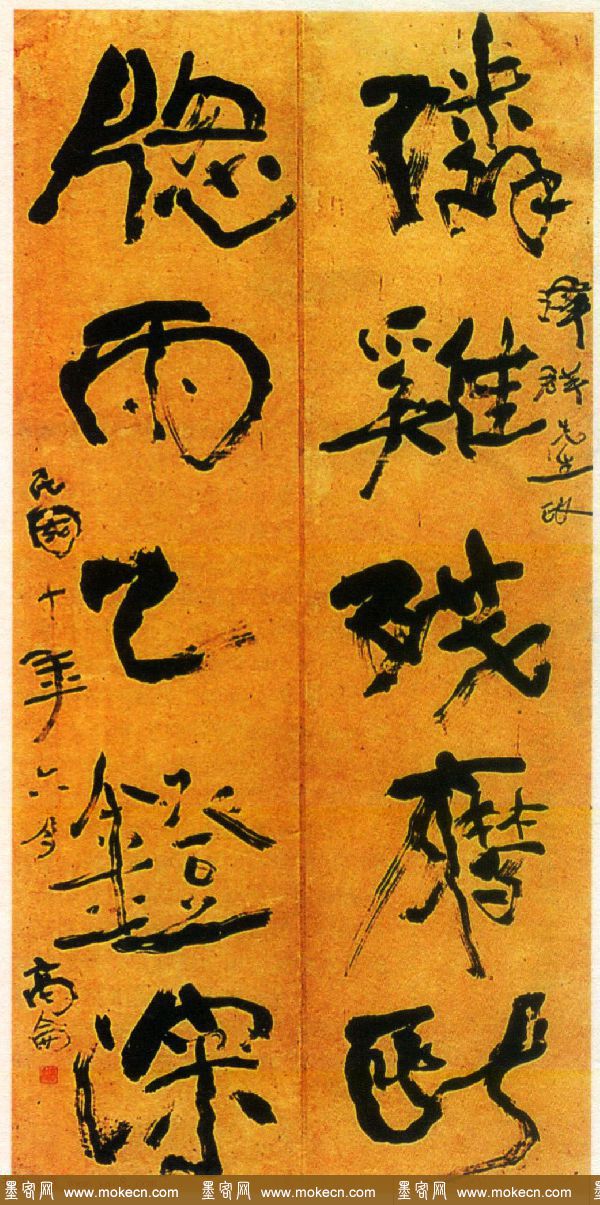 隣雞殘
群先生
牕雨乙鐙深
民國十年六月
高
墨客网 www.mokecn.com 墨客网 www.mokecn.com 墨客网 www.mokecn.com